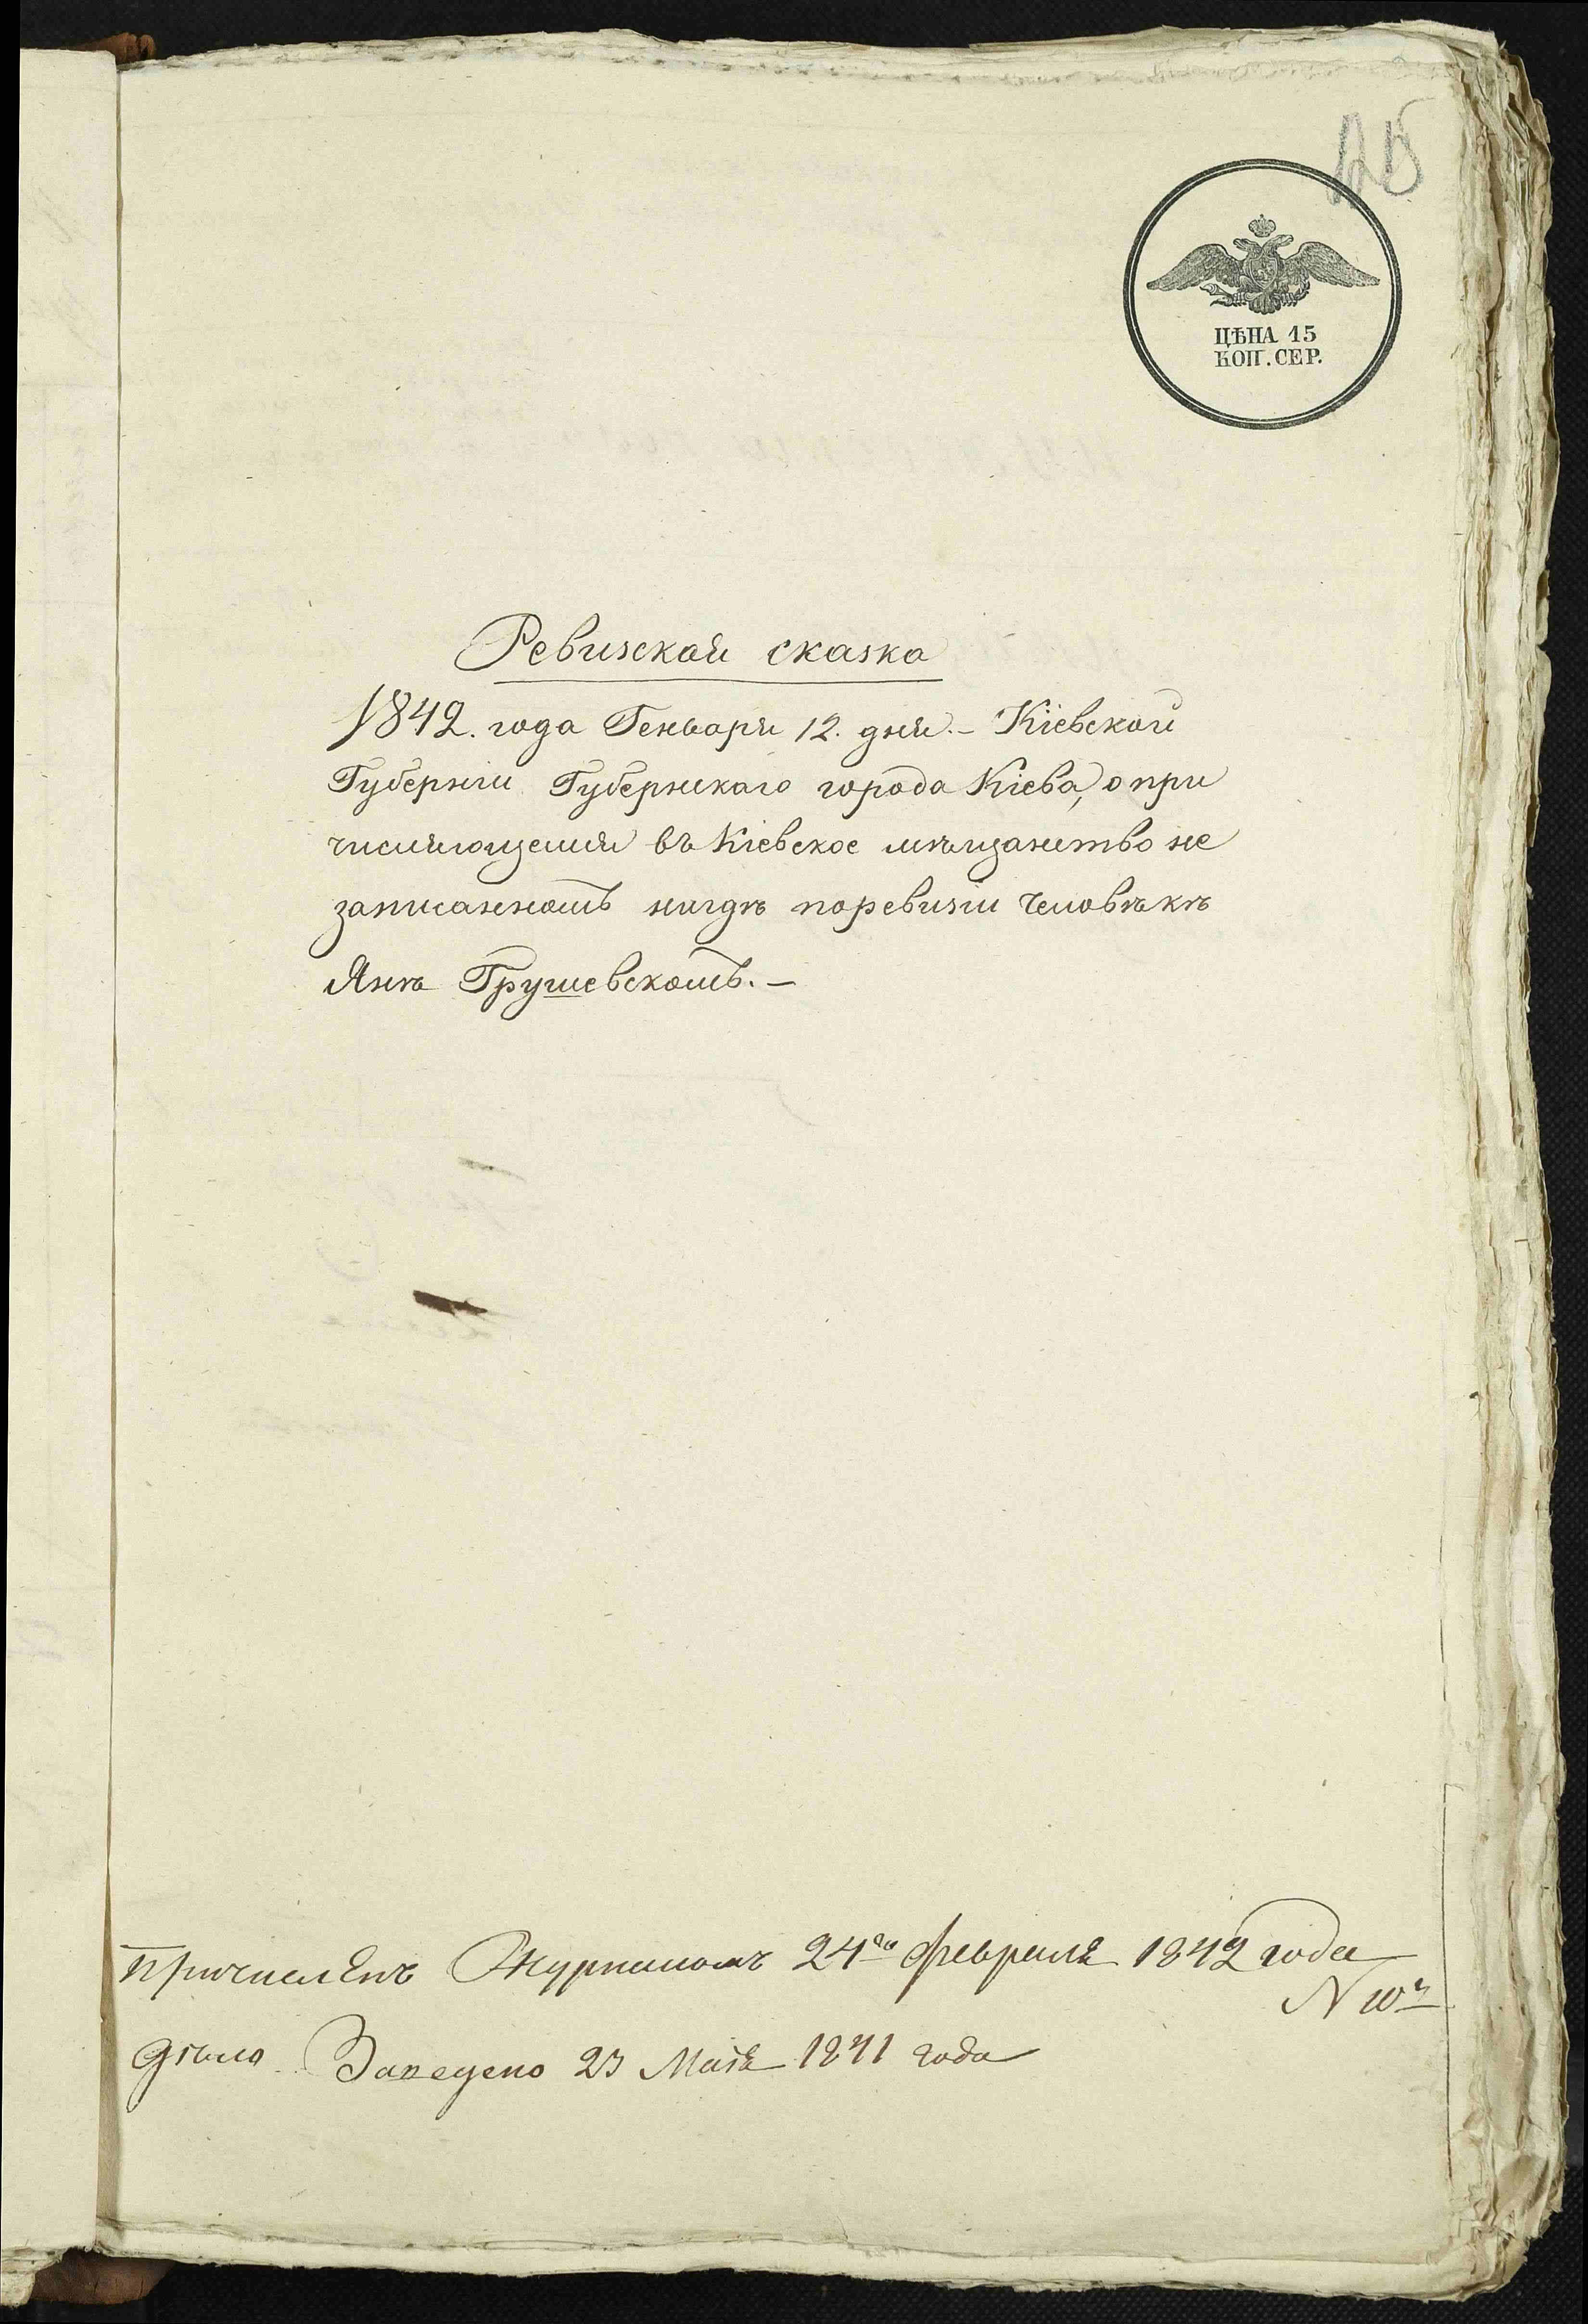 ЦѢНА 15
КОП. СЕР.
Ревизская сказка
1842. года Генваря 12. дня. - Кіевской
Губерніи Губернскаго города Кіева, о при
числяющемся въ Кіевское мѣщанство не
записанномъ нигдѣ поревизіи человѣкѣ
Янѣ Грушевскомъ. -
Причисленъ Журналомъ 24го февраля 1842 года
N
дѣло Заведено 23 Маія 1841 года